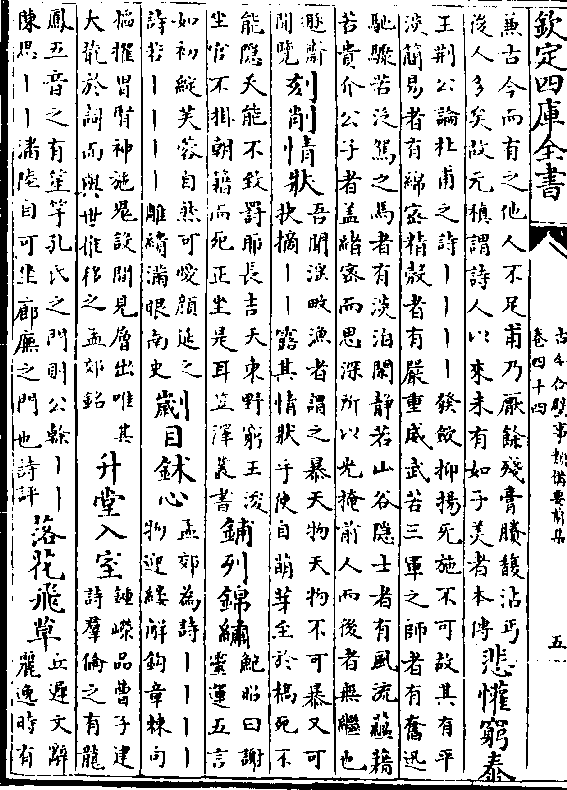 欽定四庫全書
古今合璧事類備要前集
卷四十四
五
兼古今而有之他人不足甫乃厭餘殘膏賸馥沾丐
後人多矣故元稹謂詩人以來未有如子美者本傳
悲懽窮泰
王荆公論杜甫之詩丨丨丨丨發斂抑揚旡施不可故其有平
淡簡易者有綿密精殼者有嚴重威武若三軍之師者有奮迅
馳驟若泛駕之馬者有淡泊閑靜若山谷隱士者有風流蘊藉
若貴介公子者葢緒密而思深所以光掩前人而後者無繼也
遯齋
閒覽
刻削情狀
吾聞淫畋漁者謂之暴天物天物不可暴又可
抉摘丨丨露其情狀乎使自萌芽至於槁死不
能隱天能不致罰耶長吉夭東野窮王溪
坐官不掛朝籍而死正坐是耳笠澤叢書
鋪列錦繡
鮑昭曰謝
靈運五言
如初綻芙蓉自然可愛顔延之
詩若丨丨丨丨雕繢滿眼南史
劌目鉥心
孟郊為詩丨丨丨丨
物迎縷解鉤章棘句
搯擢胃腎神施鬼設間見層出唯其
大翫於詞而與世推移之孟郊銘
升堂入室
鍾嶸品曹子建
詩羣倫之有龍
鳳五音之有笙竽孔氏之門則公幹丨丨
陳思丨丨潘陸自可坐廊廡之門也詩評
落花飛草
丘遲文辭
麗逸時有